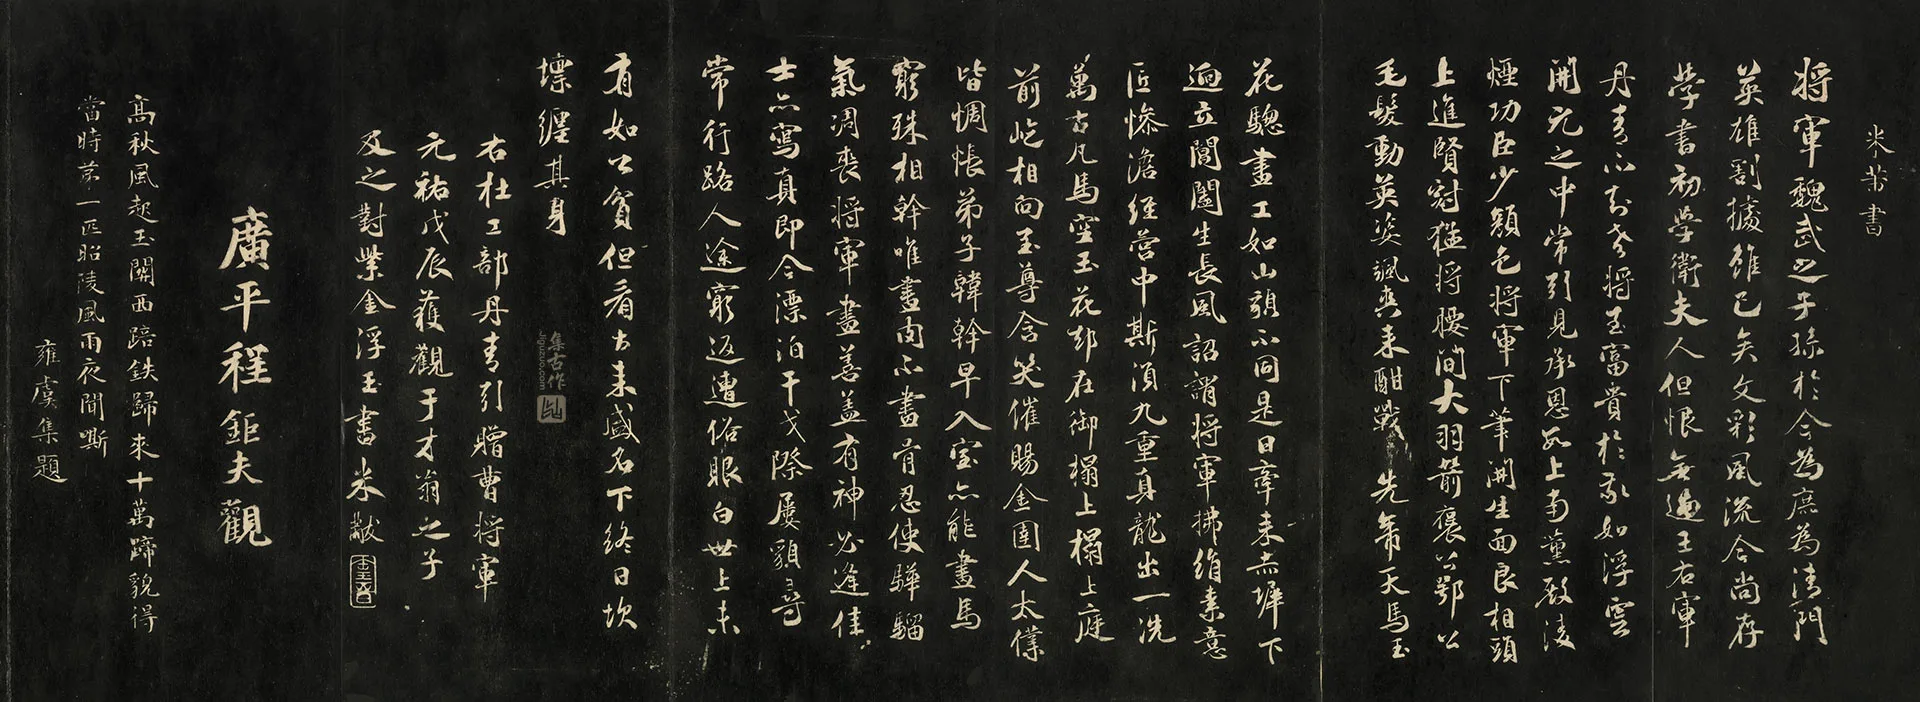 米芾書
將軍魏武之子孫於今為庶為清門
英雄割據雖已矣文彩風流今尚存
學書初學衛夫人但恨無過王右軍
丹青不知老將至富貴於我如浮雲
開元之中常引見承恩數上南薰殿淩
煙功臣少顏色將軍下筆開生面良相頭
上進賢冠猛將腰間大羽箭褒公鄂公
毛髮動英姿颯爽来酣戰先帝天馬玉
花驄畫工如山貌不同是日牽来赤墀下
迥立閶闔生長風詔謂將軍拂絹素意
匠慘澹經營中斯須九重真龍出一洗
萬古凡馬空玉花却在御榻上榻上庭
前屹相向至尊含笑催賜金圉人太僕
皆惆悵弟子韓幹早入室亦能畫馬
窮殊相幹唯畫肉不畫骨忍使驊騮
氣凋喪將軍畫善蓋有神必逢佳
士亦寫真即今漂泊干戈際屢貌尋
常行路人途窮返遭俗眼白世上未
有如公貧但看古来盛名下終日坎
壈纏其身
右杜工部丹青引贈曹將軍
元祐戊辰獲觀于才翁之子
及之對紫金浮玉書米黻
廣平程鉅夫觀
高秋風起玉關西踣鉄歸來十萬蹄貌得
當時第一匹昭陵風雨夜聞嘶
雍虞集題
集古作
jiguzuo.com